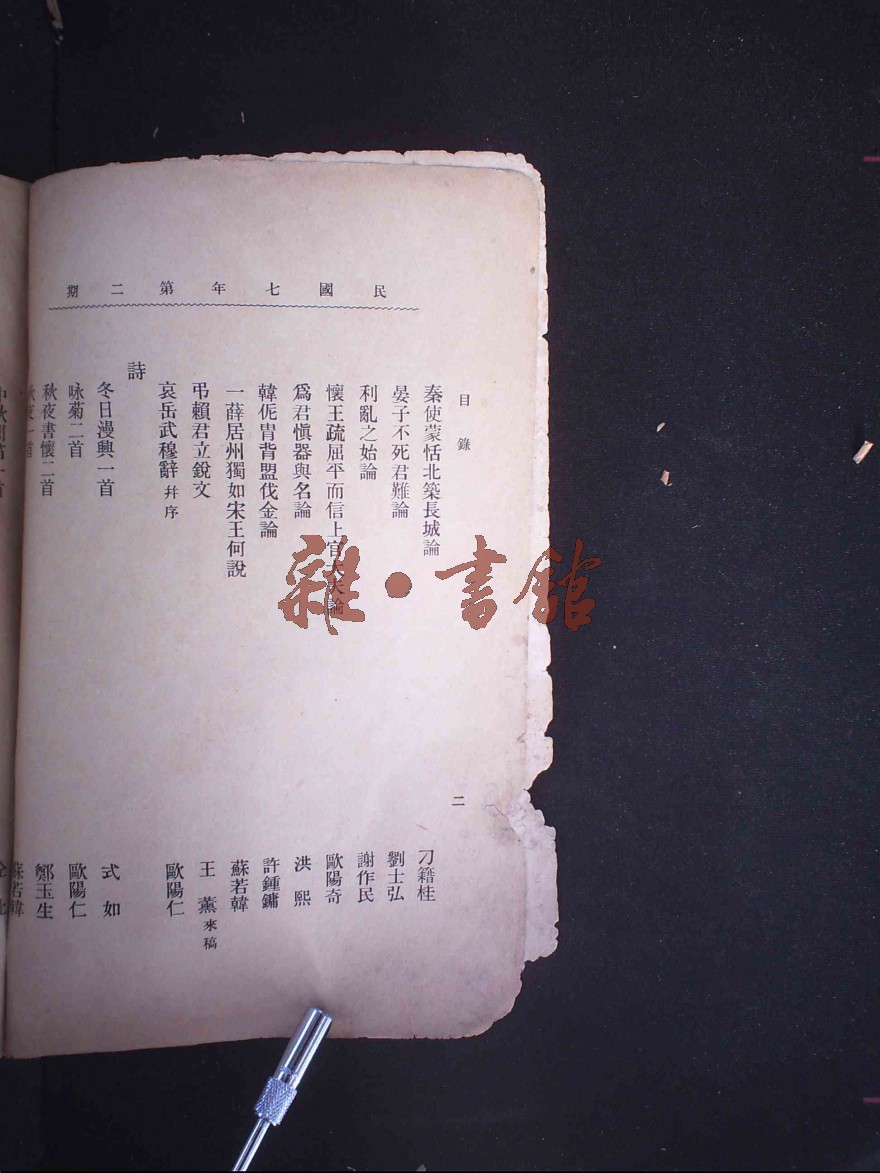 民國七年第二期
目錄
二
秦使蒙恬北築長城論 刁籍桂
晏子不死君難論 劉士弘
利亂之始論 謝作民
懷王疏屈平而信上官大夫論 歐陽奇
爲君愼器與名論 洪熙
韓侂冑背盟伐金論 許鍾鏞
一薛居州獨如宋王何說 蘇若韓
弔賴君立銳文 王薰來稿
哀岳武穆辭幷序 歐陽仁
詩
冬日漫興一首 式如
咏菊二首 歐陽仁
秋夜書懷二首 鄭玉生
雜·書館